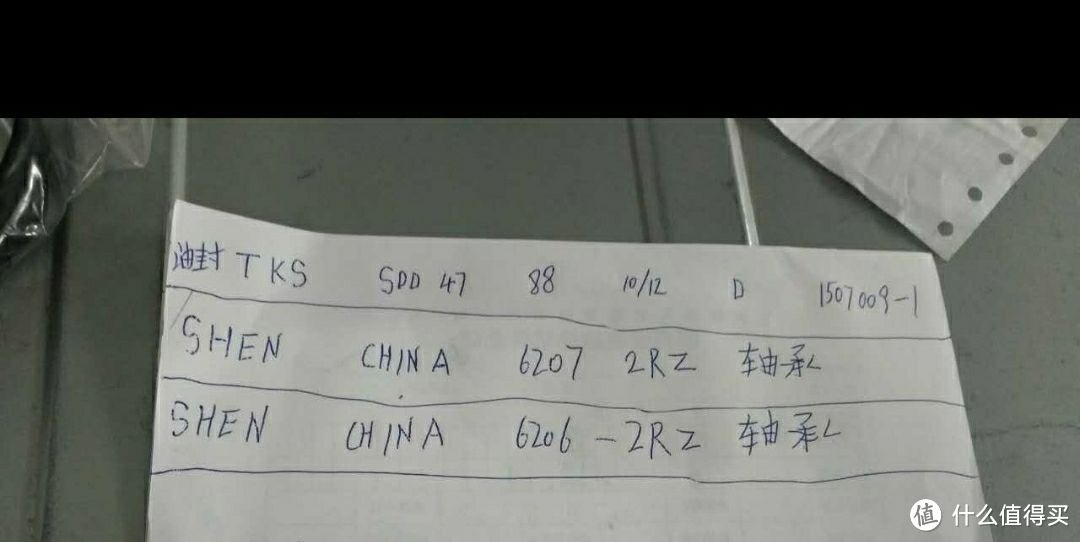 油封 TKS SDD 47 88 10/12 D 1507009-1
SHEN CHINA 6207 2RZ 轴承
SHEN CHINA 6206-2RZ 轴承
值 什么值得买